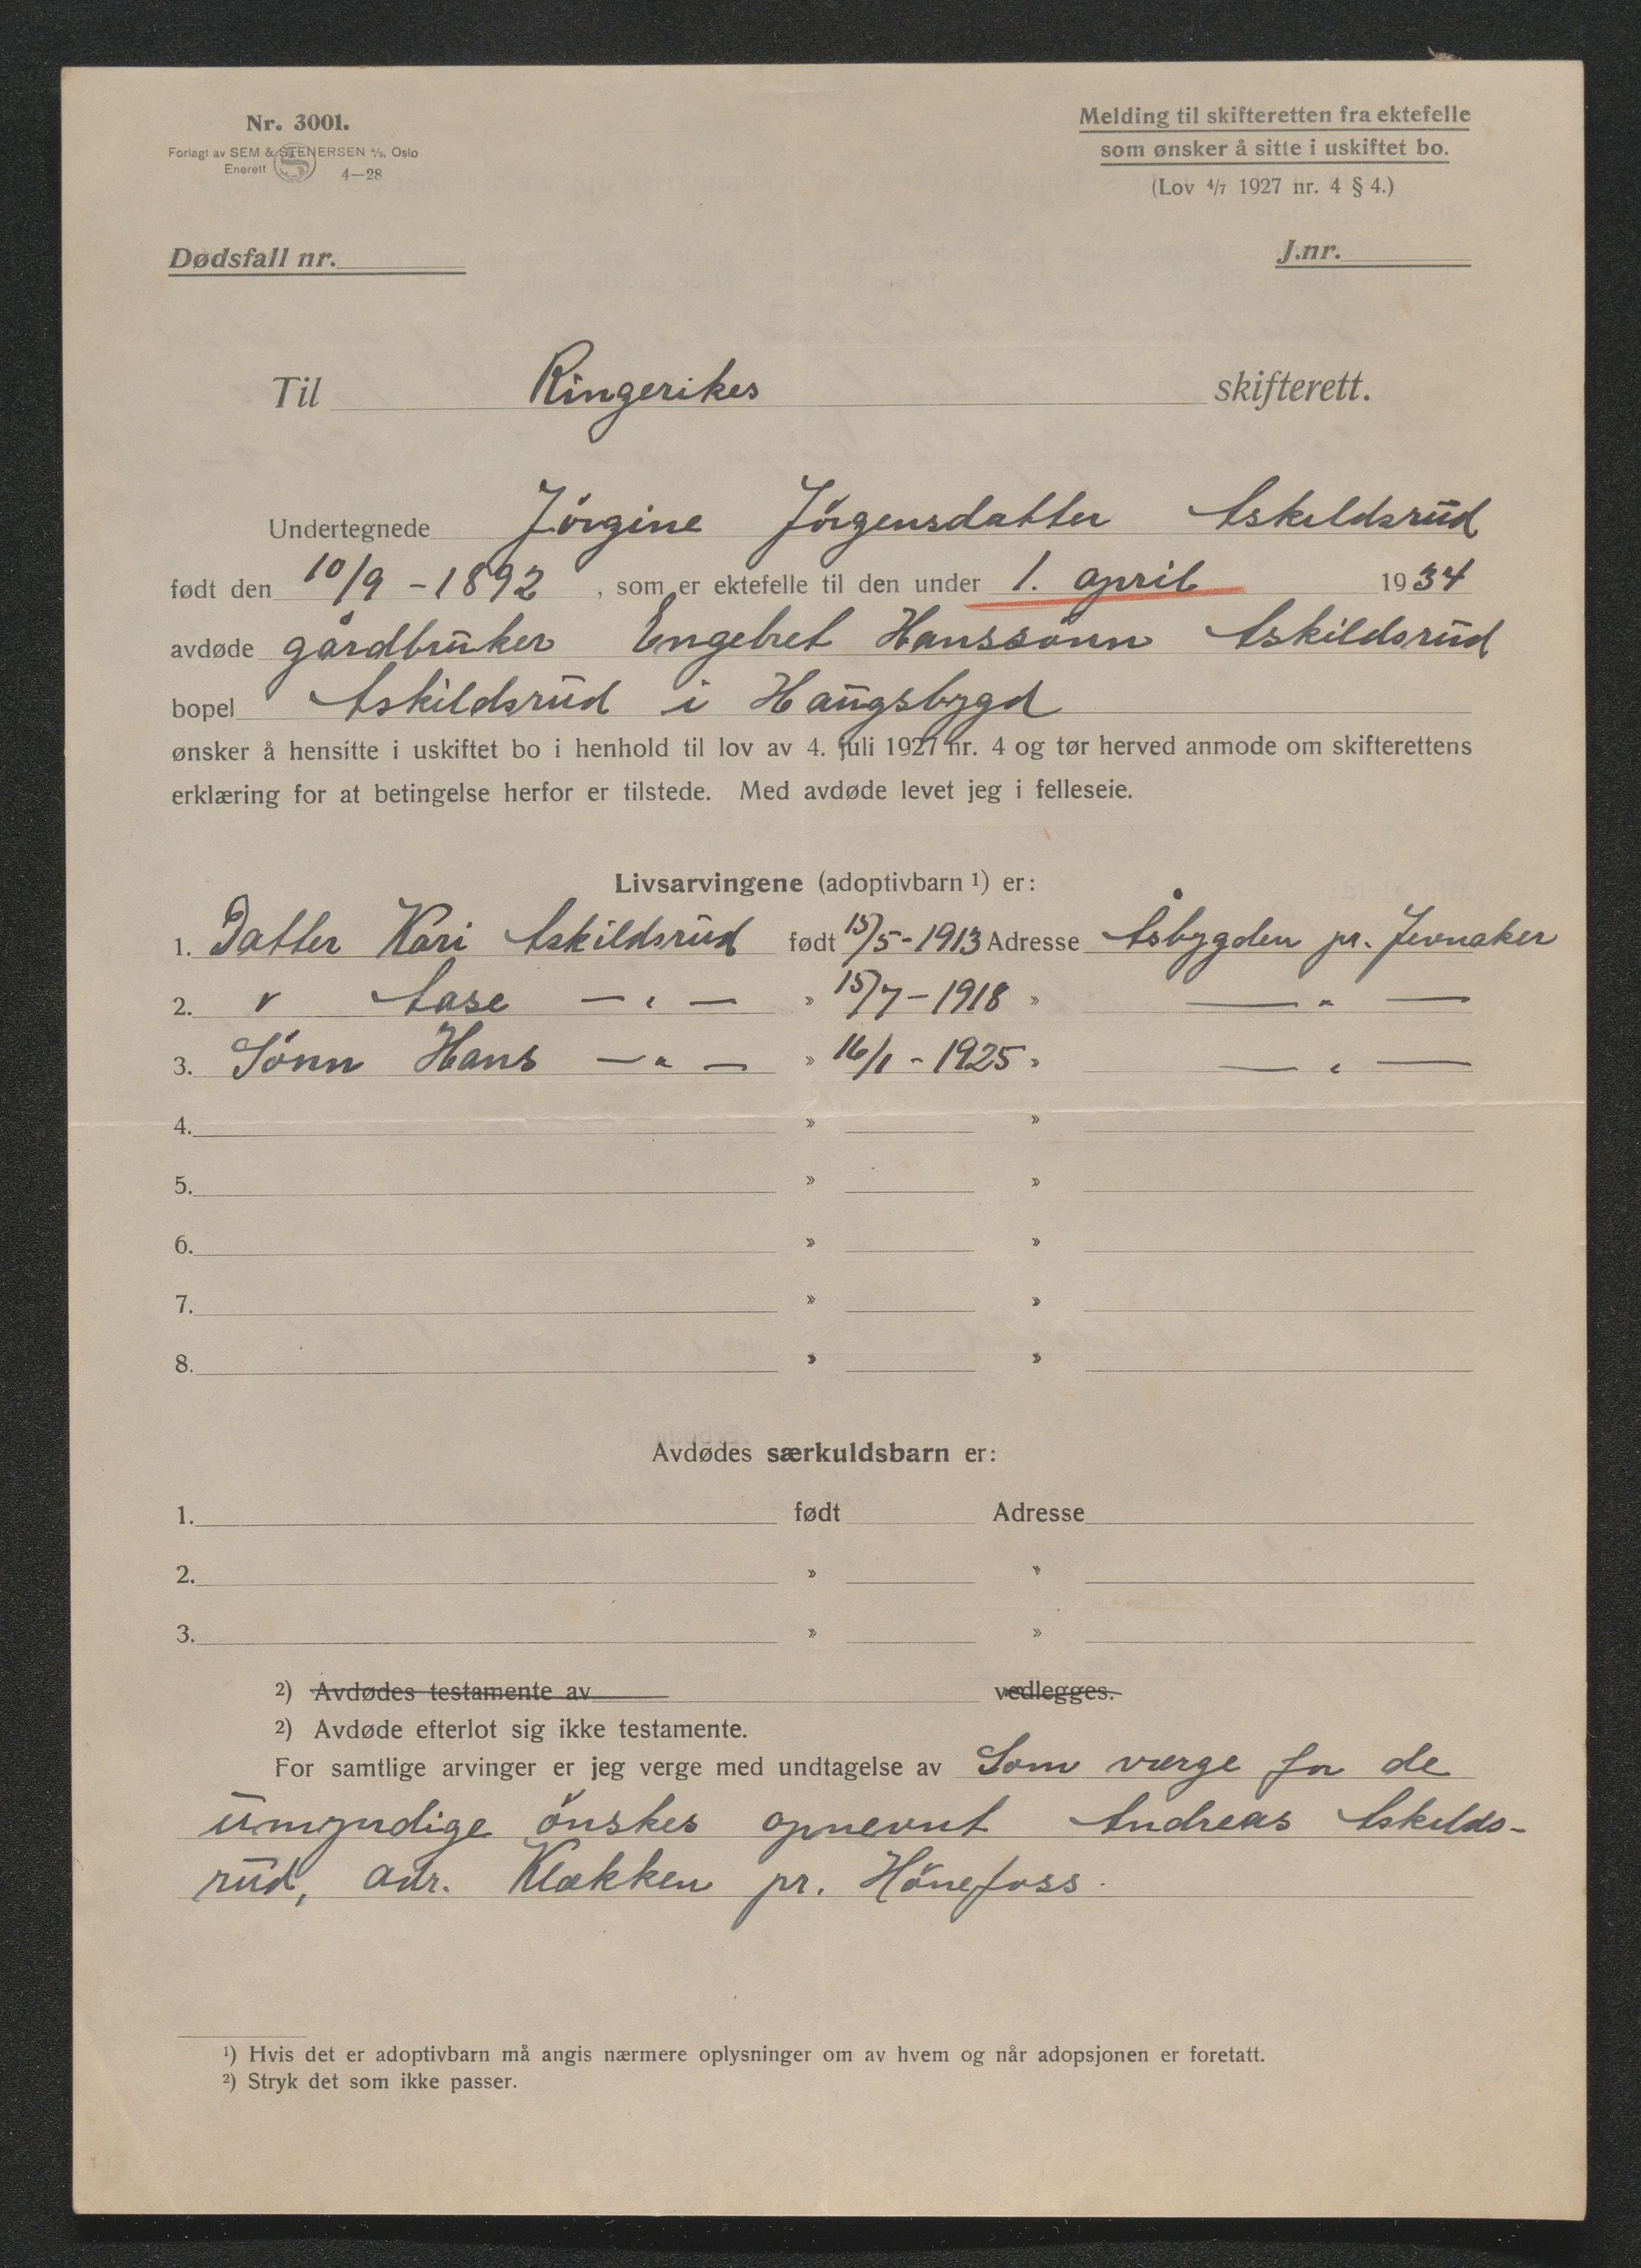 Nr. 3001.
Forlagt av SEM & STENERSEN A/S, Oslo
Enerett 4—28
Melding til skifteretten fra ektefelle
som ønsker å sitte i uskiftet bo.
(Lov 4/7 1927 nr. 4 § 4.)
Dødsfall nr.
J.nr.
Til Ringerikes skifterett.
Undertegnede Jörgine Jörgensdatter Askildsrud
født den 10/9 - 1892, som er ektefelle til den under 1. april 1934
avdøde gårdbruker Engebret Hanssönn Askildsrud
bopel Askildsrud i Haugsbygd
ønsker å hensitte i uskiftet bo i henhold til lov av 4. juli 1927 nr. 4 og tør herved anmode om skifterettens
erklæring for at betingelse herfor er tilstede. Med avdøde levet jeg i felleseie.
Livsarvingene (adoptivbarn ¹) er:
1. Datter Kari Askildsrud født 15/5 - 1913 Adresse Åsbygden pr. Jevnaker
2. " Aase — " — » 15/7 - 1918 » — " —
3. Sönn Hans — " — » 16/1 - 1925 » — " —
4. » »
5. » »
6. » »
7. » »
8. » »
Avdødes særkuldsbarn er:
1. født Adresse
2. » »
3. » »
²) Avdødes testamente av vedlegges.
²) Avdøde efterlot sig ikke testamente.
For samtlige arvinger er jeg verge med undtagelse av Som værge for de
umyndige önskes opnevnt Andreas Askilds-
rud, adr. Klækken pr. Hönefoss.
¹) Hvis det er adoptivbarn må angis nærmere oplysninger om av hvem og når adopsjonen er foretatt.
²) Stryk det som ikke passer.